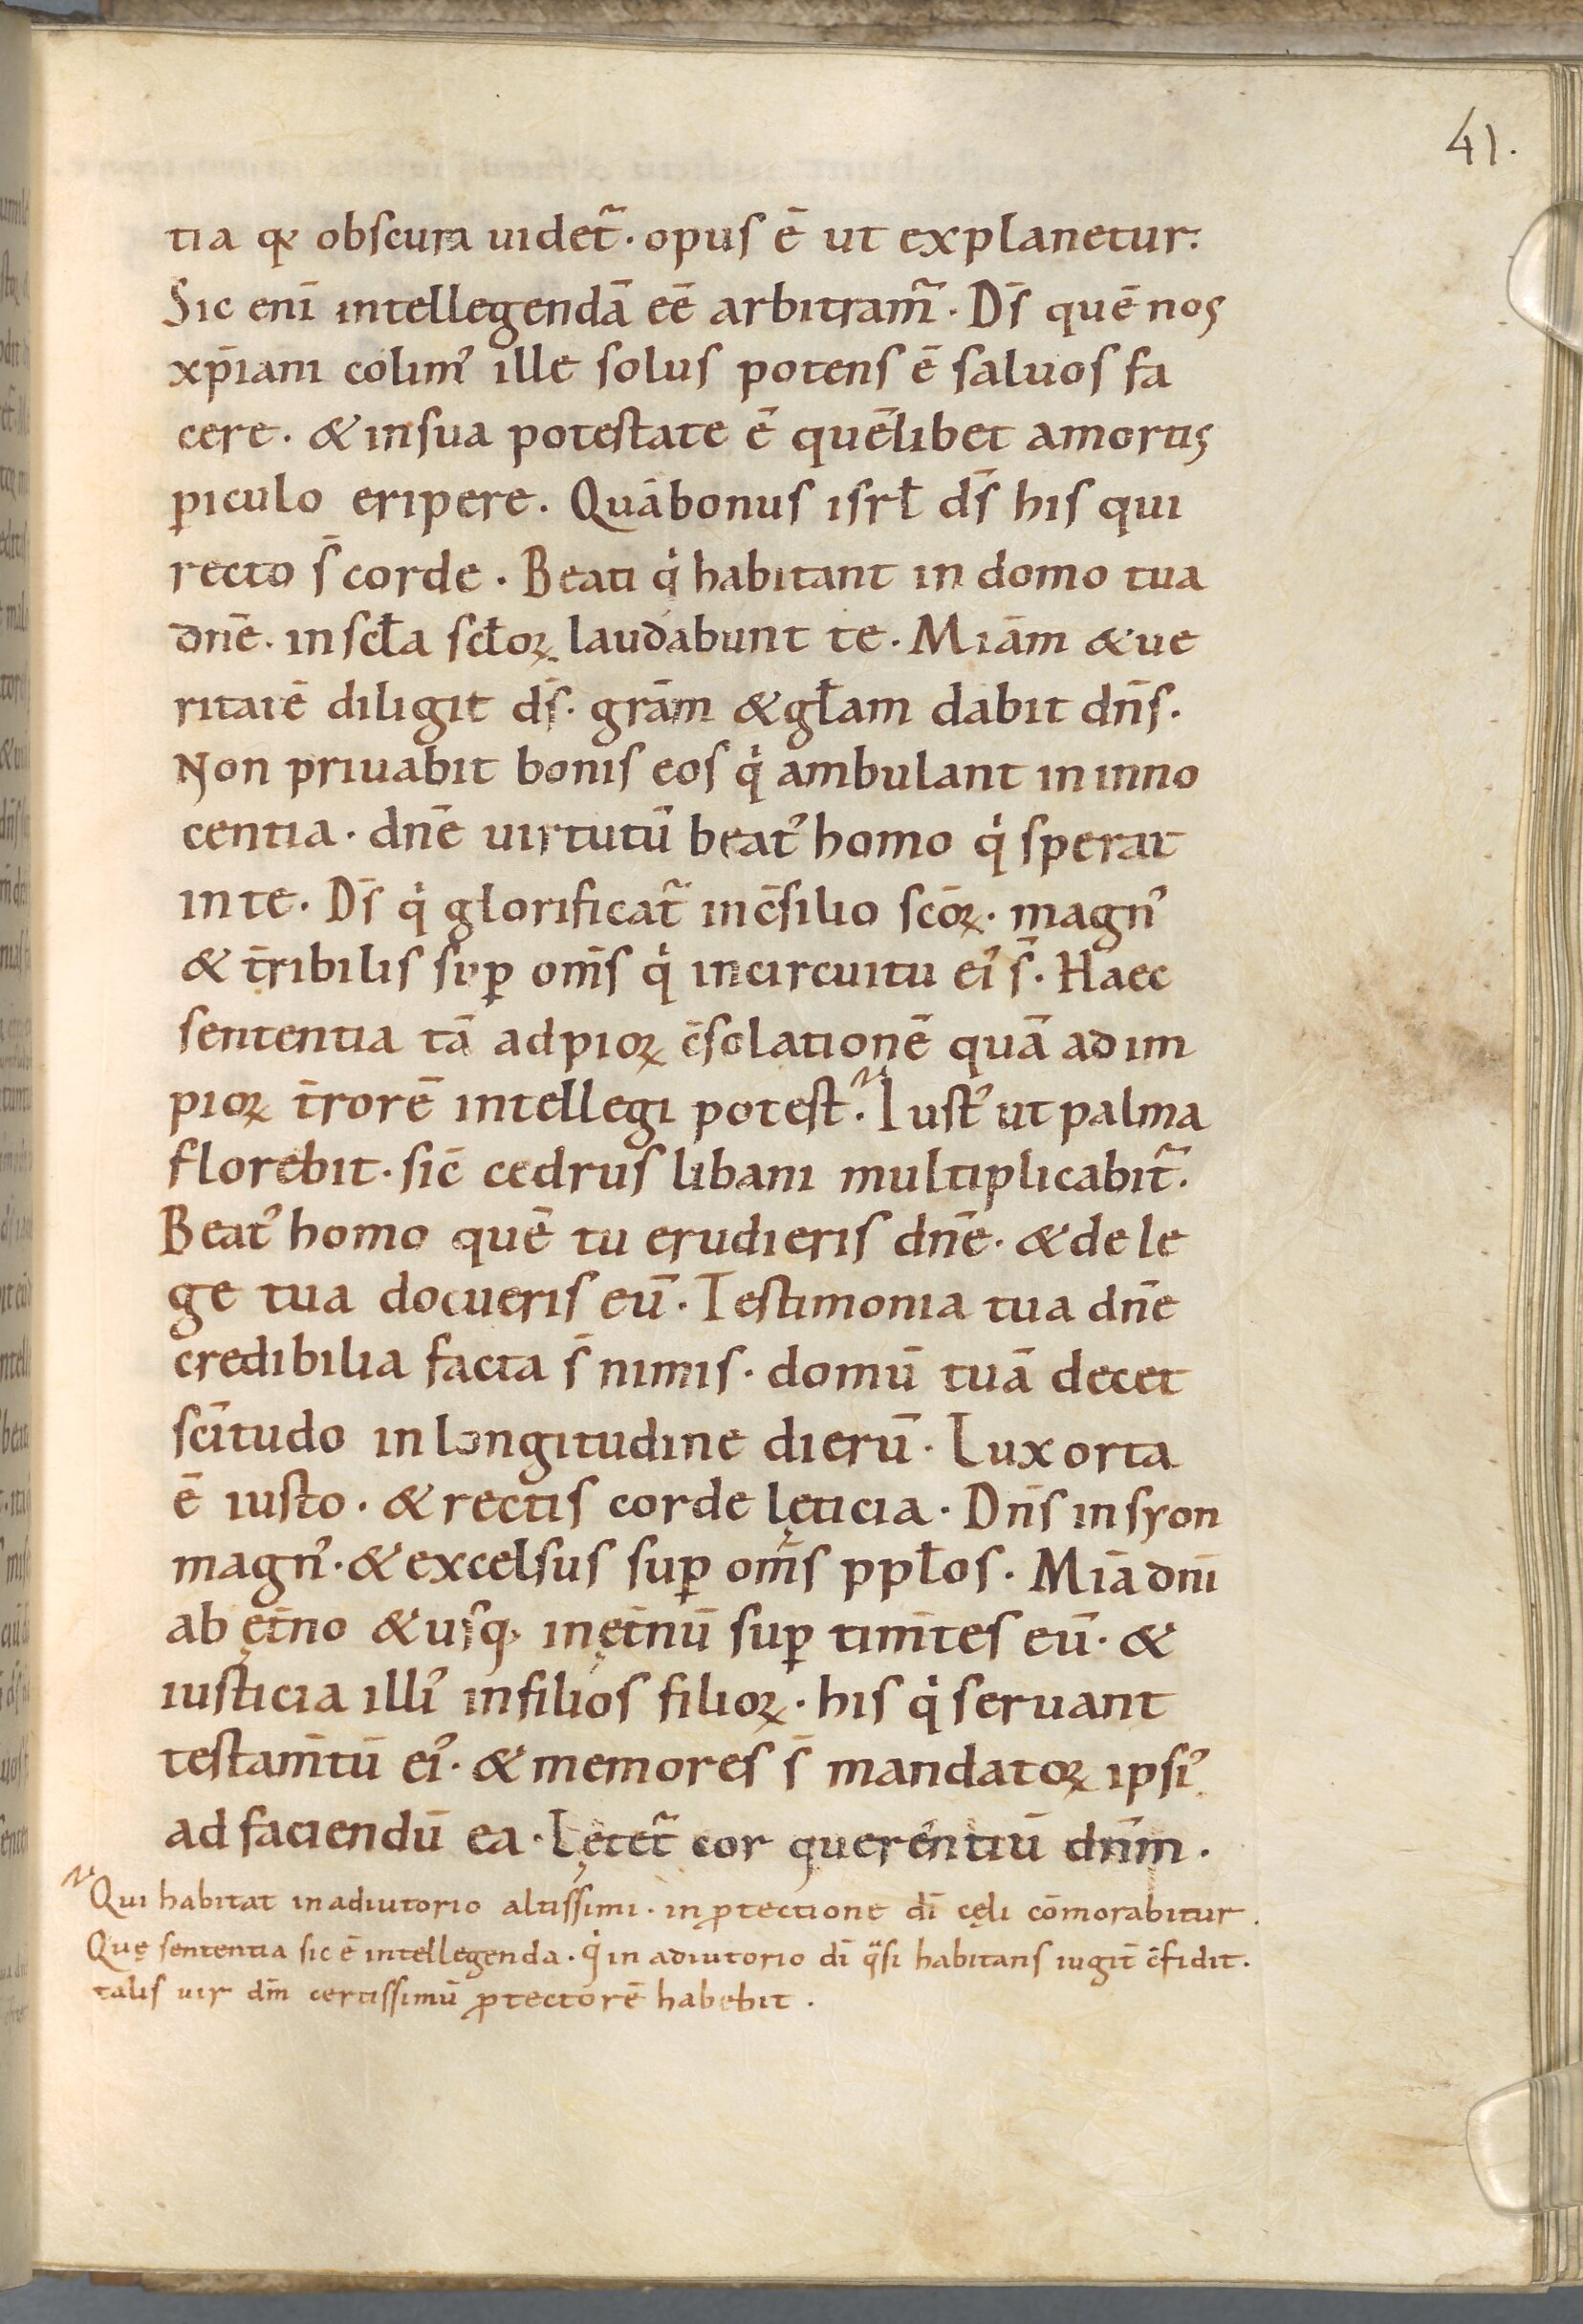 41.
tia qꝛ obscura uidet᷑. opus ē ut explanetur:
Sic enī intellegendā eē arbitram᷑. Dſ̄ quē nos
xp̄iani colimꝰ ille solus potens ē saluos fa
cere. & in sua potestate ē quēlibet a mortis
ꝑiculo eripere. Quā bonus isrł dſ̄ his qui
recto ſ̄ corde. Beati qͥ habitant in domo tua
dn̄e. in scła scłoꝝ laudabunt te. Miām & ue
ritatē diligit dſ̄. grām & głam dabit dn̄s.
Non priuabit bonis eos qͥ ambulant in inno
centia. dn̄e uirtutū beatꝰ homo qͥ sperat
in te. Dſ̄ qͥ glorificat᷑ in c̄silio scōꝝ. magnꝰ
& t̄ribilis suꝑ om̄s qͥ in circuitu eiꝰ ſ̄. Haec
sententia tā ad pioꝝ c̄solationē quā ad im
pioꝝ t̄rorē intellegi potest. Iustꝰ ut palma
florebit. sic̄ cedrus libani multiplicabit᷑.
Beatꝰ homo quē tu erudieris dn̄e. & de le
ge tua docueris eū. Testimonia tua dn̄e
credibilia facta ſ̄ nimis. domū tuā decet
sc̄itudo in longitudine dierū. Lux orta
ē iusto. & rectis corde lęticia. Dn̄s in syon
magnꝰ. & excelsus suꝑ om̄s ppłos. Miā dn̄i
ab ęt̄no & usq; in ęt̄nū suꝑ tim̄tes eū. &
iusticia illiꝰ in filios filioꝝ. his qͥ seruant
testam̄tū eiꝰ. & memores ſ̄ mandatoꝝ ipsiꝰ
ad faciendū ea. Lętet᷑ cor querentiū dn̄m.
Qui habitat in adiutorio altissimi. in ꝓtectione dī cęli cōmorabitur.
Quę sententia sic ē intellegenda. qͥ in adiutorio dī qͣsi habitans iugit̄ c̄fidit.
talis uir dm̄ certissimū ꝓtectorē habebit.